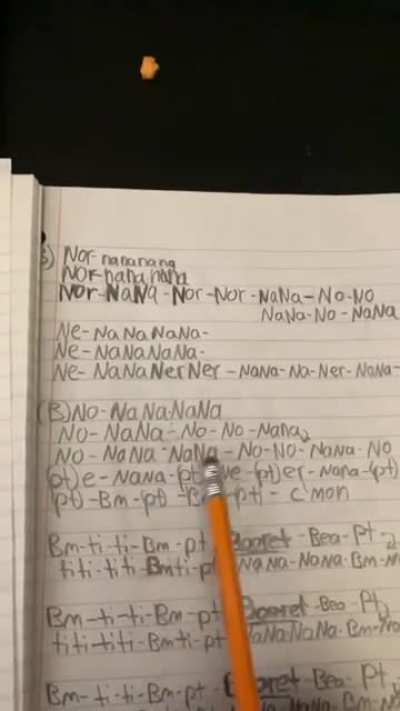 Nor-nananana
Nor-nana nana
Nor-NaNa-Nor-Nor-NaNa-No-No
NaNa-No-NaNa
Ne-NaNaNaNa-
Ne-NaNaNaNa-
Ne-NaNaNerNer-NaNa-Na-Ner-NaNa-
(B)No-NaNaNaNa
No-NaNa-No-No-NaNa
No-NaNa-NaNa-No-No-NaNa-No
(pt)e-NaNa-(pt er-Nana-(pt)
(pt)-Bm-pt- pt)-C'mon
Bm-ti-ti-Bm-pt- -Bea-Pt
titi-titi Bmti-p NaNa-NaNa-Bm-
Bm-ti-ti-Bm-pt -Bea-Pt
titi-titi-Bmti-pt NaNaNaNa-Bm-
Bm-ti-ti-Bm-pt- -Bea-Pt